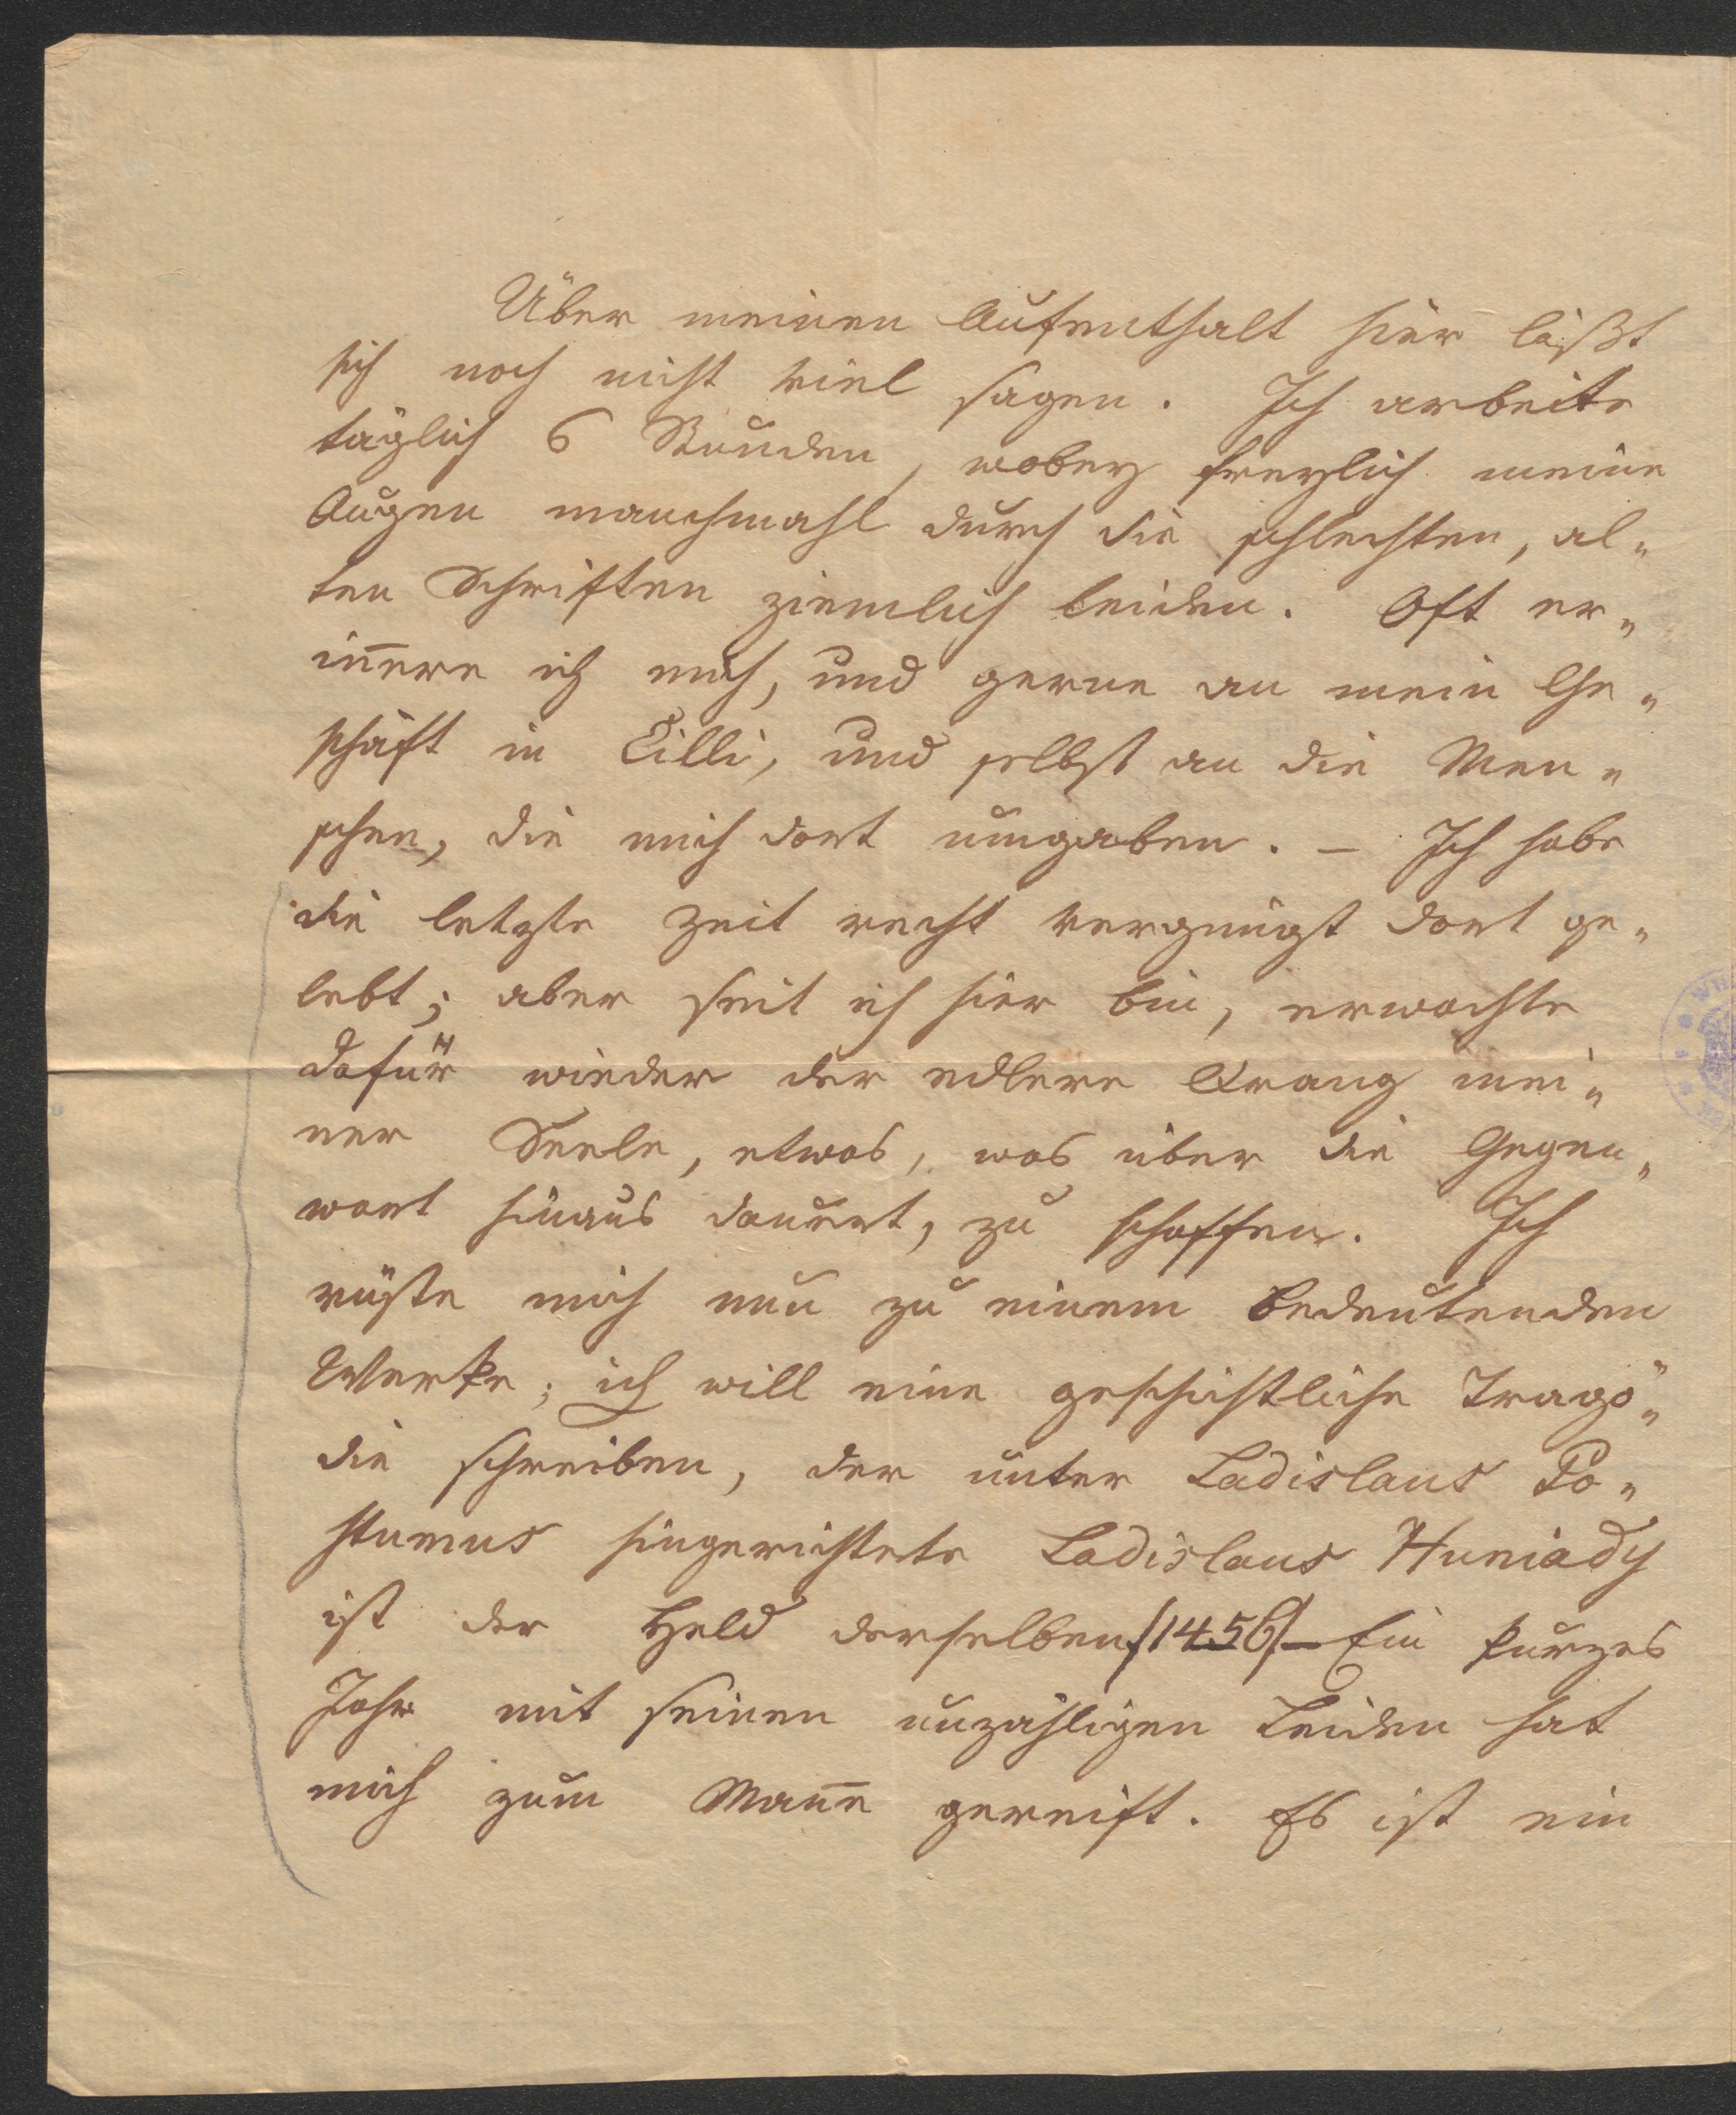 Über meinen Aufenthalt hier läßt
sich noch nicht viel sagen. Ich arbeite
täglich 6 Stunden, wobey freylich meine
Augen manchmahl durch die schlechten, al„
ten Schriften ziemlich leiden. Oft er„
iñere ich mich, und gerne an mein Ge„
schäft in Cilli, und selbst an die Men„
schen, die mich dort umgaben. – Ich habe
die letzte Zeit recht vergnügt dort ge„
lebt; aber seit ich hier bin, erwachte
dafür wieder der edlere Drang mei„
ner Seele, etwas, was über die Gegen„
wart hinaus dauert, zu schaffen. Ich
rüste mich nun zu einem bedeutenden
Werke; ich will eine geschichtliche Tragö„
die schreiben, der unter Ladislaus Po„
stumus hingerichtete Ladislaus Huniady
ist der Held derselben /1456/ – Ein kurzes
Jahr mit seinen unzähligen Leiden hat
mich zum Mañe gereift. Es ist ein